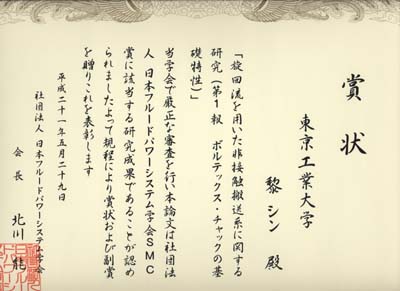 賞状
東京工業大学
黎シン 殿
「旋回流を用いた非接触搬送系に関する
研究(第1報 ボルテックス・チャックの基
礎特性)」
当学会で厳正な審査を行い本論文は社団法
人 日本フルードパワーシステム学会SMC
賞に該当する研究成果であることが認め
られましたよって規程により賞状および副賞
を贈りこれを表彰します
平成二十一年五月二十九日
社団法人 日本フルードパワーシステム学会
会長 北川 能